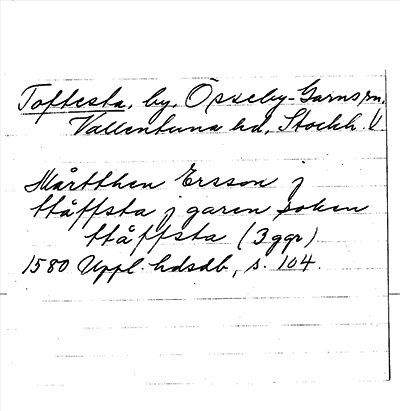 Toftesta, by, Össeby-Garns sn,
Vallentuna hd, Stockh. l.
Mårtthen Ersson j
ttåffsta j garen soken
ttåffsta (3 ggr)
1580 Uppl. hdsdb, s. 104.